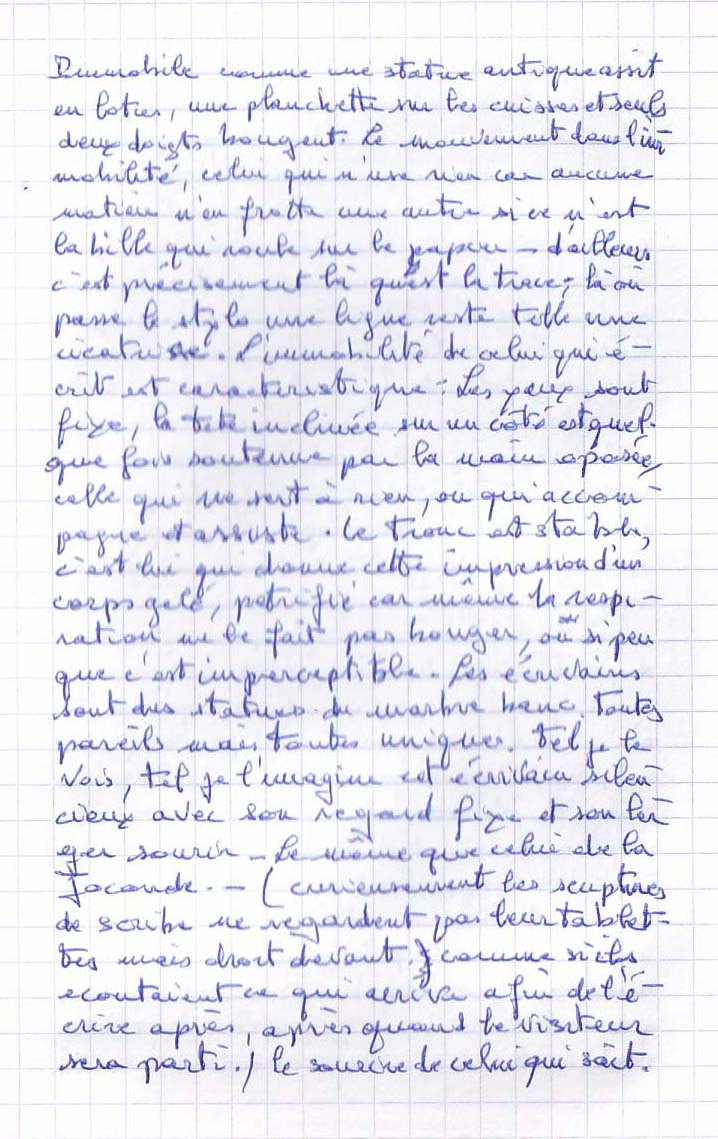 Immobile comme une statue antique assit
en lotus, une planchette sur les cuisses et seuls
deux doigts bougent. Le mouvement dans l'im-
mobilité, celui qui n'use rien car aucune
matière n'en frotte une autre si ce n'est
la bille qui roule sur le papier – d'ailleurs
c'est précisement là qu'est la trace; là où
passe le stylo une ligne reste telle une
cicatrise. L'immobilité de celui qui é-
crit est caracteristique : Les yeux sont
fixe, la tete inclinée sur un côté est quel-
que fois soutenue par la main oposée,
celle qui ne sert à rien, ou qui accom-
pagne et assiste. Le tronc est stable,
c'est lui qui donne cette impression d'un
corps gelé, petrifié car même la respi-
ration ne le fait pas bouger, ou si peu
que c'est imperceptible. Les écrivains
sont des statues de marbre blanc, toutes
pareils mais toutes uniques. Tel je le
vois, tel je l'imagine cet écrivain silen-
cieux avec son regard fixe et son lé-
ger sourir – Le même que celui de la
Joconde. – (curieusement les scuptures
de scribe ne regardent pas leur tablet-
tes mais droit devant.) comme s'ils
ecoutaient ce qui arrive afin de l'é-
crire après, après quand le visiteur
sera parti.) le sourire de celui qui sait.